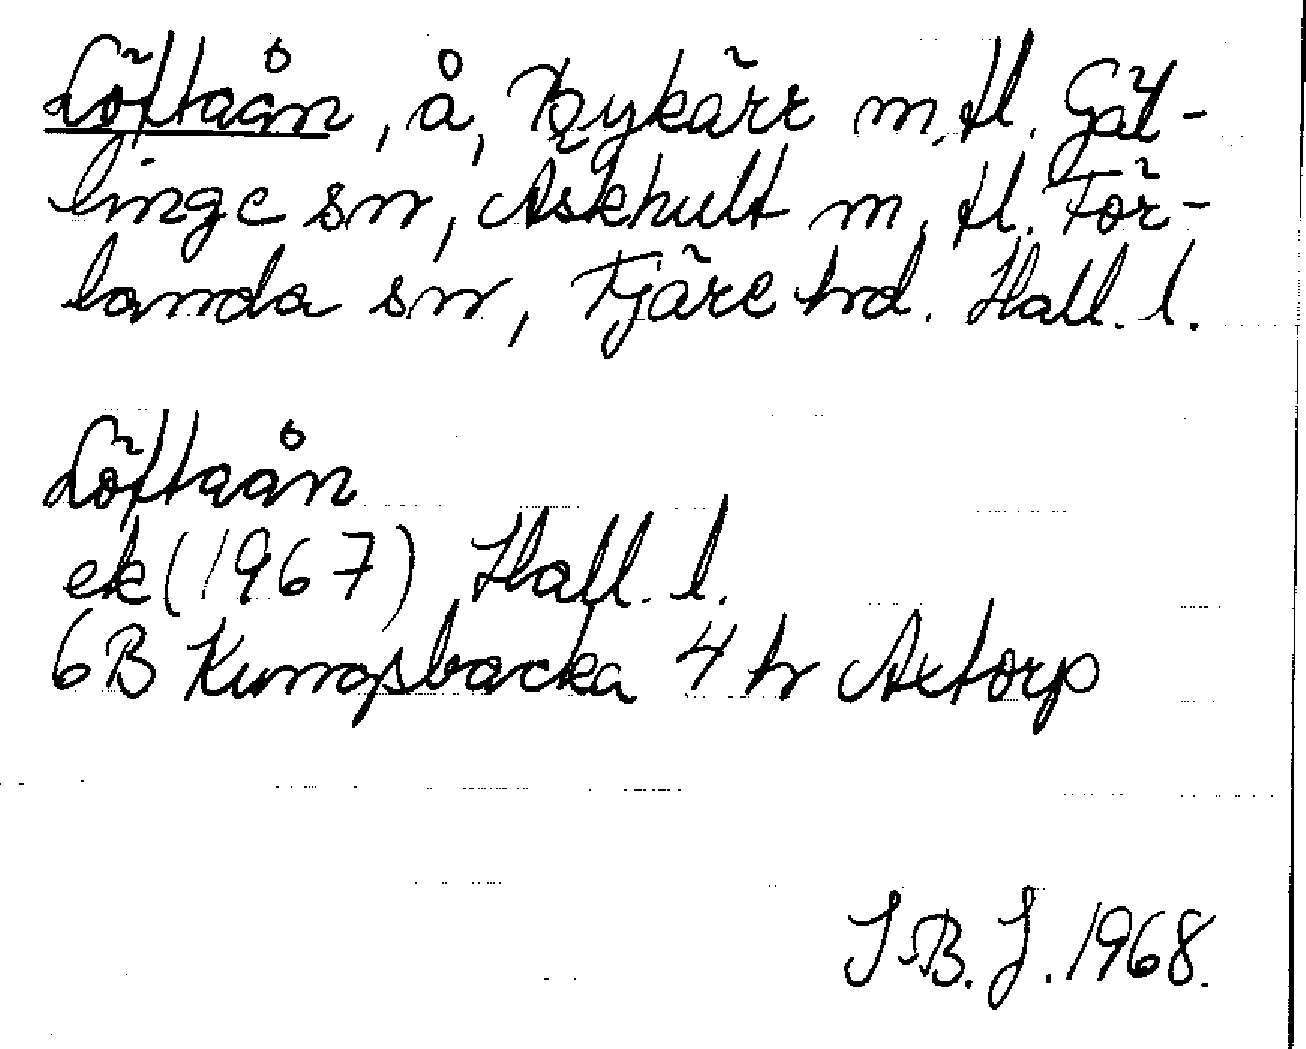 Löftaån, å, Rykärr m.fl. Gäl-
linge sn, Äskhult m.fl. För-
landa sn, Fjäre hd. Hall. l.
Löftaån
ek (1967) Hall. l.
6B Kungsbacka 4 h Axtorp
I.B.J. 1968.